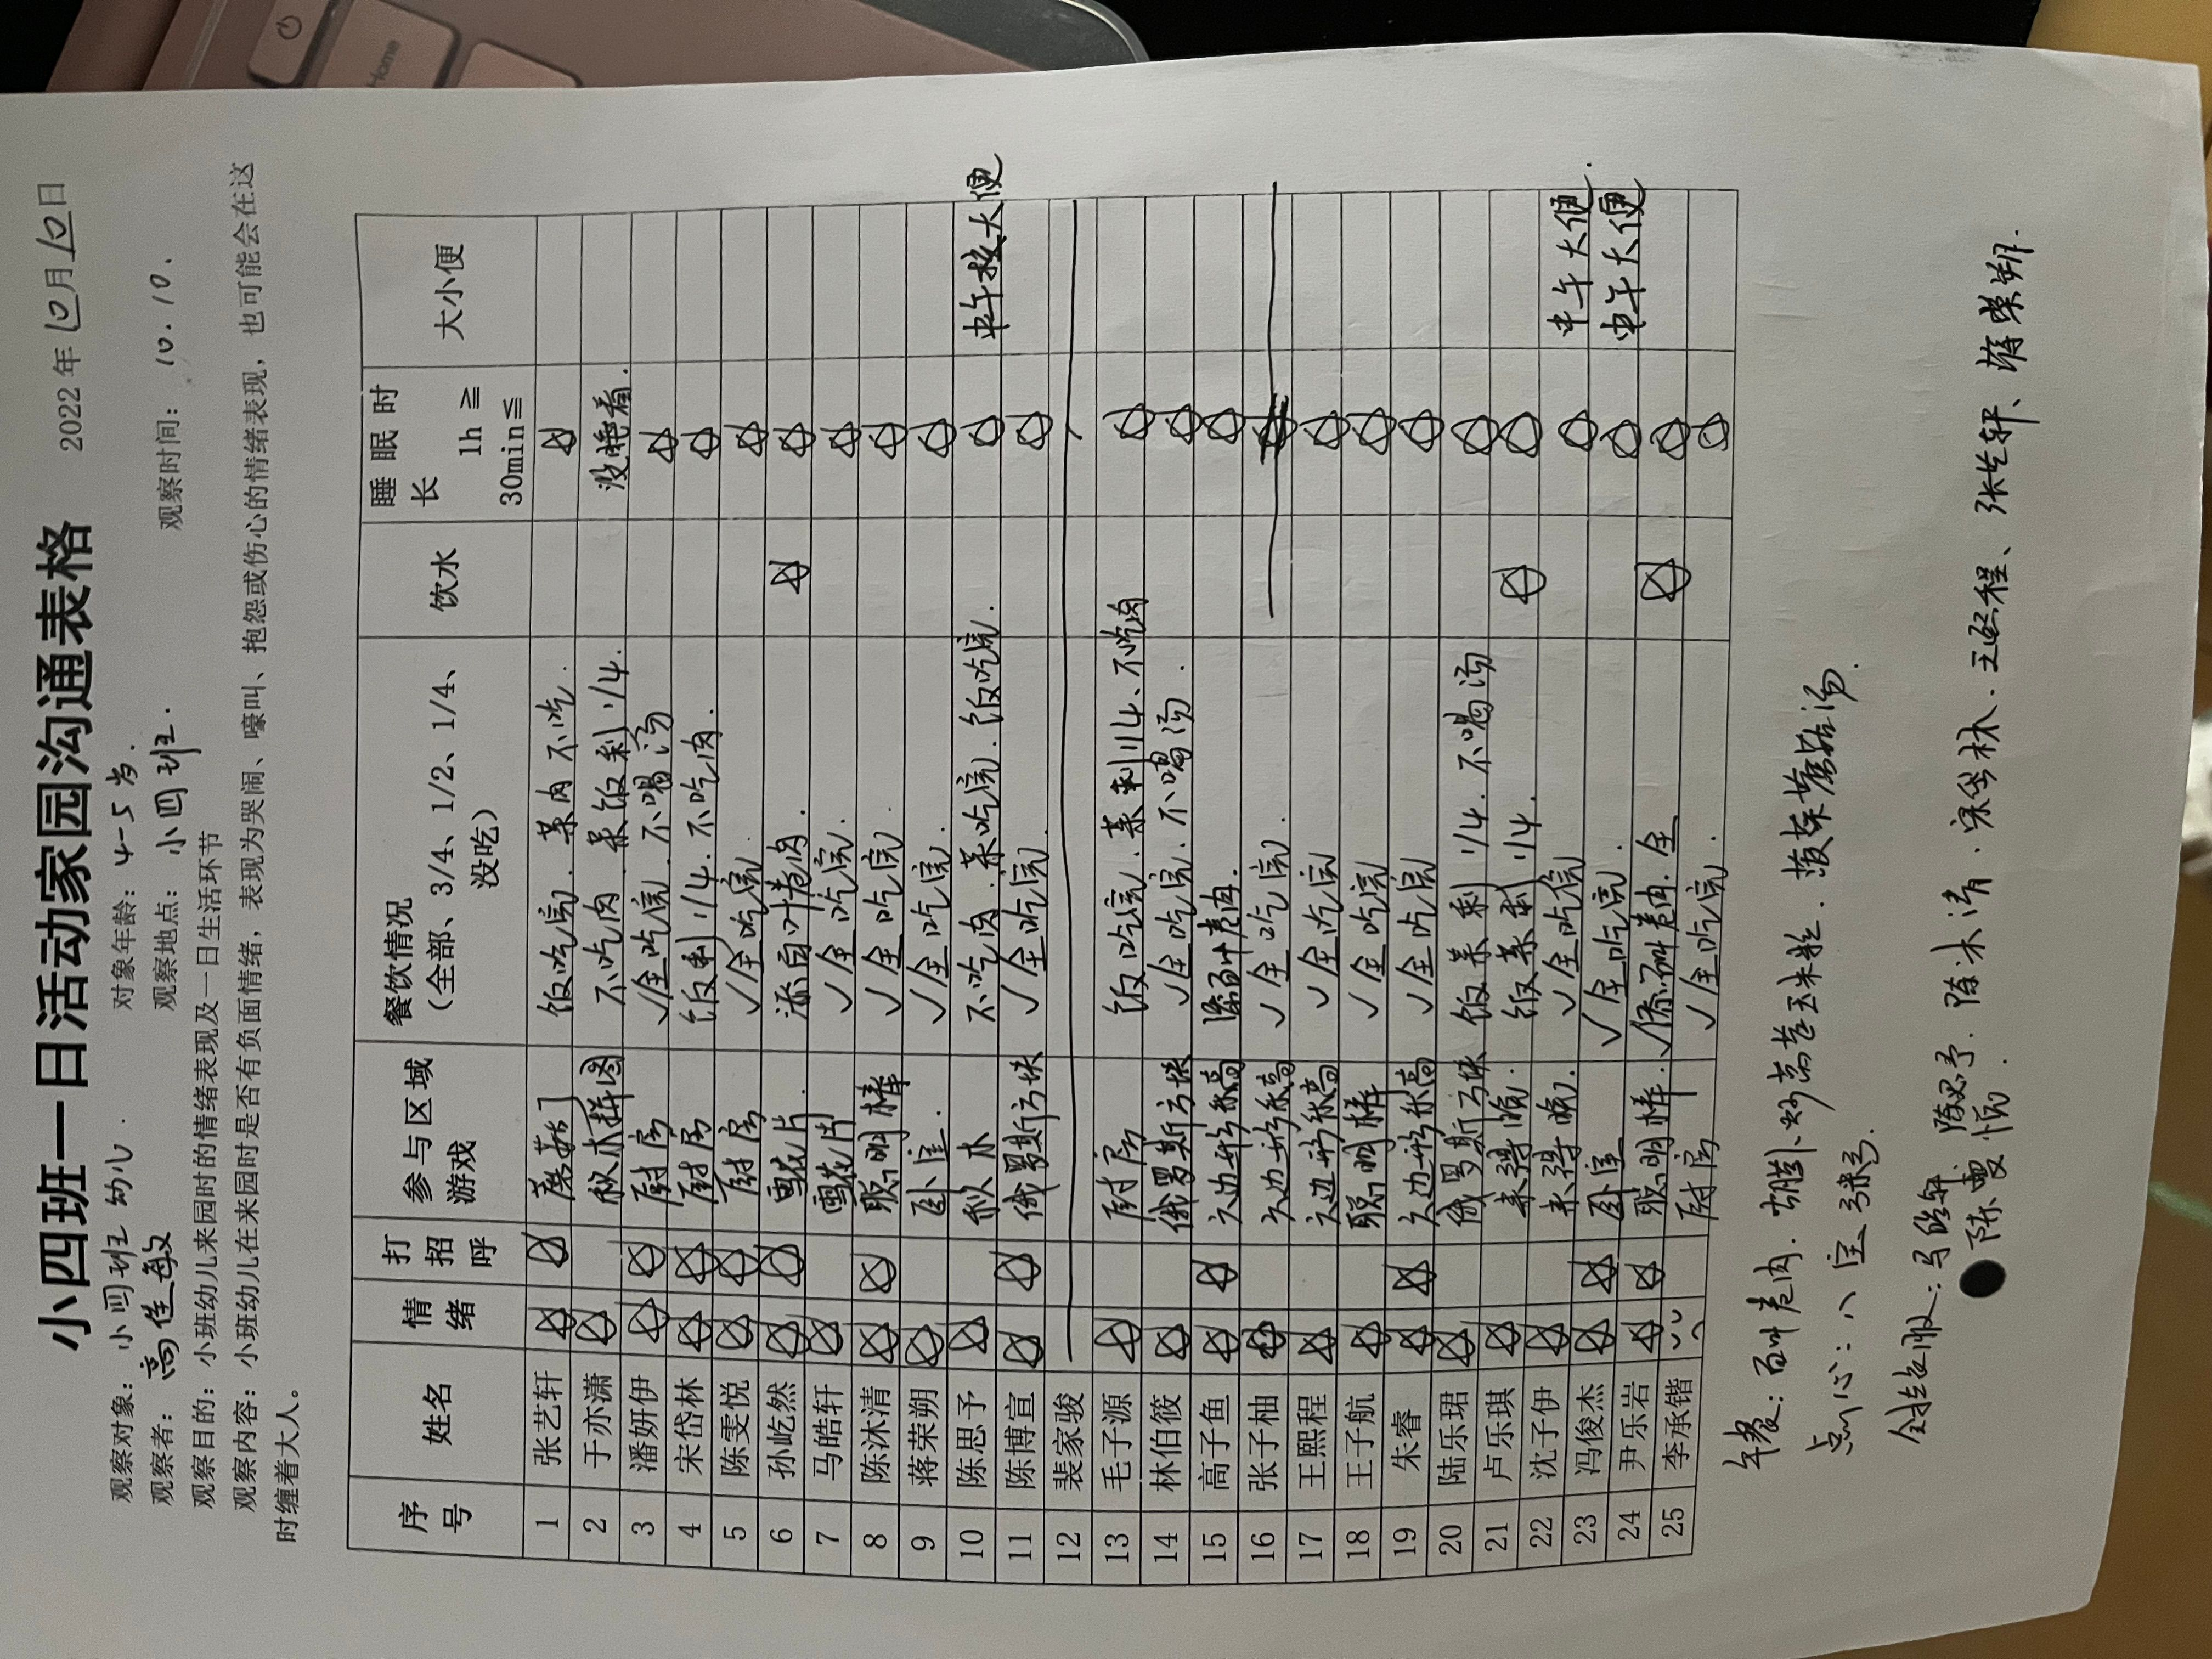 Home
小四班一日活动家园沟通表格 2022年10月10日
观察对象：小四班幼儿. 对象年龄：4-5岁. 观察时间：10.10.
观察者：高佳敏 观察地点：小四班.
观察目的：小班幼儿来园时的情绪表现及一日生活环节
观察内容：小班幼儿在来园时是否有负面情绪，表现为哭闹、嚎叫、抱怨或伤心的情绪表现，也可能会在这
时缠着大人。
序号 姓名 情绪 打招呼 参与区域游戏 餐饮情况（全部、3/4、1/2、1/4、没吃） 饮水 睡眠时长 1h≧ 30min≦ 大小便
1 张艺轩 ☆ ☆ 蘑菇丁 饭吃完.菜肉不吃. ☆
2 于亦潇 ☆ 积木拼图 不吃肉.菜饭剩1/4. 没睡着.
3 潘妍伊 ☆ ☆ 厨房 ✓全吃完.不喝汤 ☆
4 宋岱林 ☆ ☆ 厨房 饭剩1/4.不吃肉. ☆
5 陈雯悦 ☆ ☆ 厨房 ✓全吃完 ☆
6 孙屹然 ☆ ☆ 雪花片. 添百叶卷肉. ☆ ☆
7 马皓轩 ☆ 雪花片 ✓全吃完. ☆
8 陈沐清 ☆ ☆ 聪明棒 ✓全吃完. ☆
9 蒋荣朔 ☆ 卧室. ✓全吃完. ☆
10 陈思予 ☆ 积木 不吃肉.菜吃完.饭吃完. ☆ 中午大便
11 陈博宣 ☆ ☆ 俄罗斯方块 ✓全吃完. ☆
12 裴家骏
13 毛子源 ☆ 厨房 饭吃完.菜剩1/4、不吃肉 ☆
14 林伯筱 ☆ 俄罗斯方块 ✓全吃完.不喝汤. ☆
15 高子鱼 ☆ ☆ 六边形叠高 添百叶卷肉. ☆
16 张子柚 ☆ 六边形叠高 ✓全吃完.
17 王熙程 ☆ 六边形叠高 ✓全吃完 ☆
18 王子航 ☆ 聪明棒 ✓全吃完 ☆
19 朱睿 ☆ ☆ 六边形叠高 ✓全吃完 ☆
20 陆乐珺 ☆ 俄罗斯方块 饭菜剩1/4.不喝汤 ☆
21 卢乐琪 ☆ 来得晚. 饭菜剩1/4. ☆ ☆
22 沈子伊 ☆ 来得晚. ✓全吃完 ☆ 中午大便.
23 冯俊杰 ☆ ☆ 卧室 ✓全吃完. ☆ 中午大便
24 尹乐岩 ☆ ☆ 聪明棒. ✓添百叶卷肉.全 ☆ ☆
25 李承锴 厨房 ✓全吃完. ☆
午餐：百叶卷肉.胡萝卜炒莴苣玉米粒.菠菜蘑菇汤.
点心：八宝粥.
马皓轩 陈思予.陈沐清.宋岱林.王熙程、张艺轩、蒋荣朔.
陈雯悦.